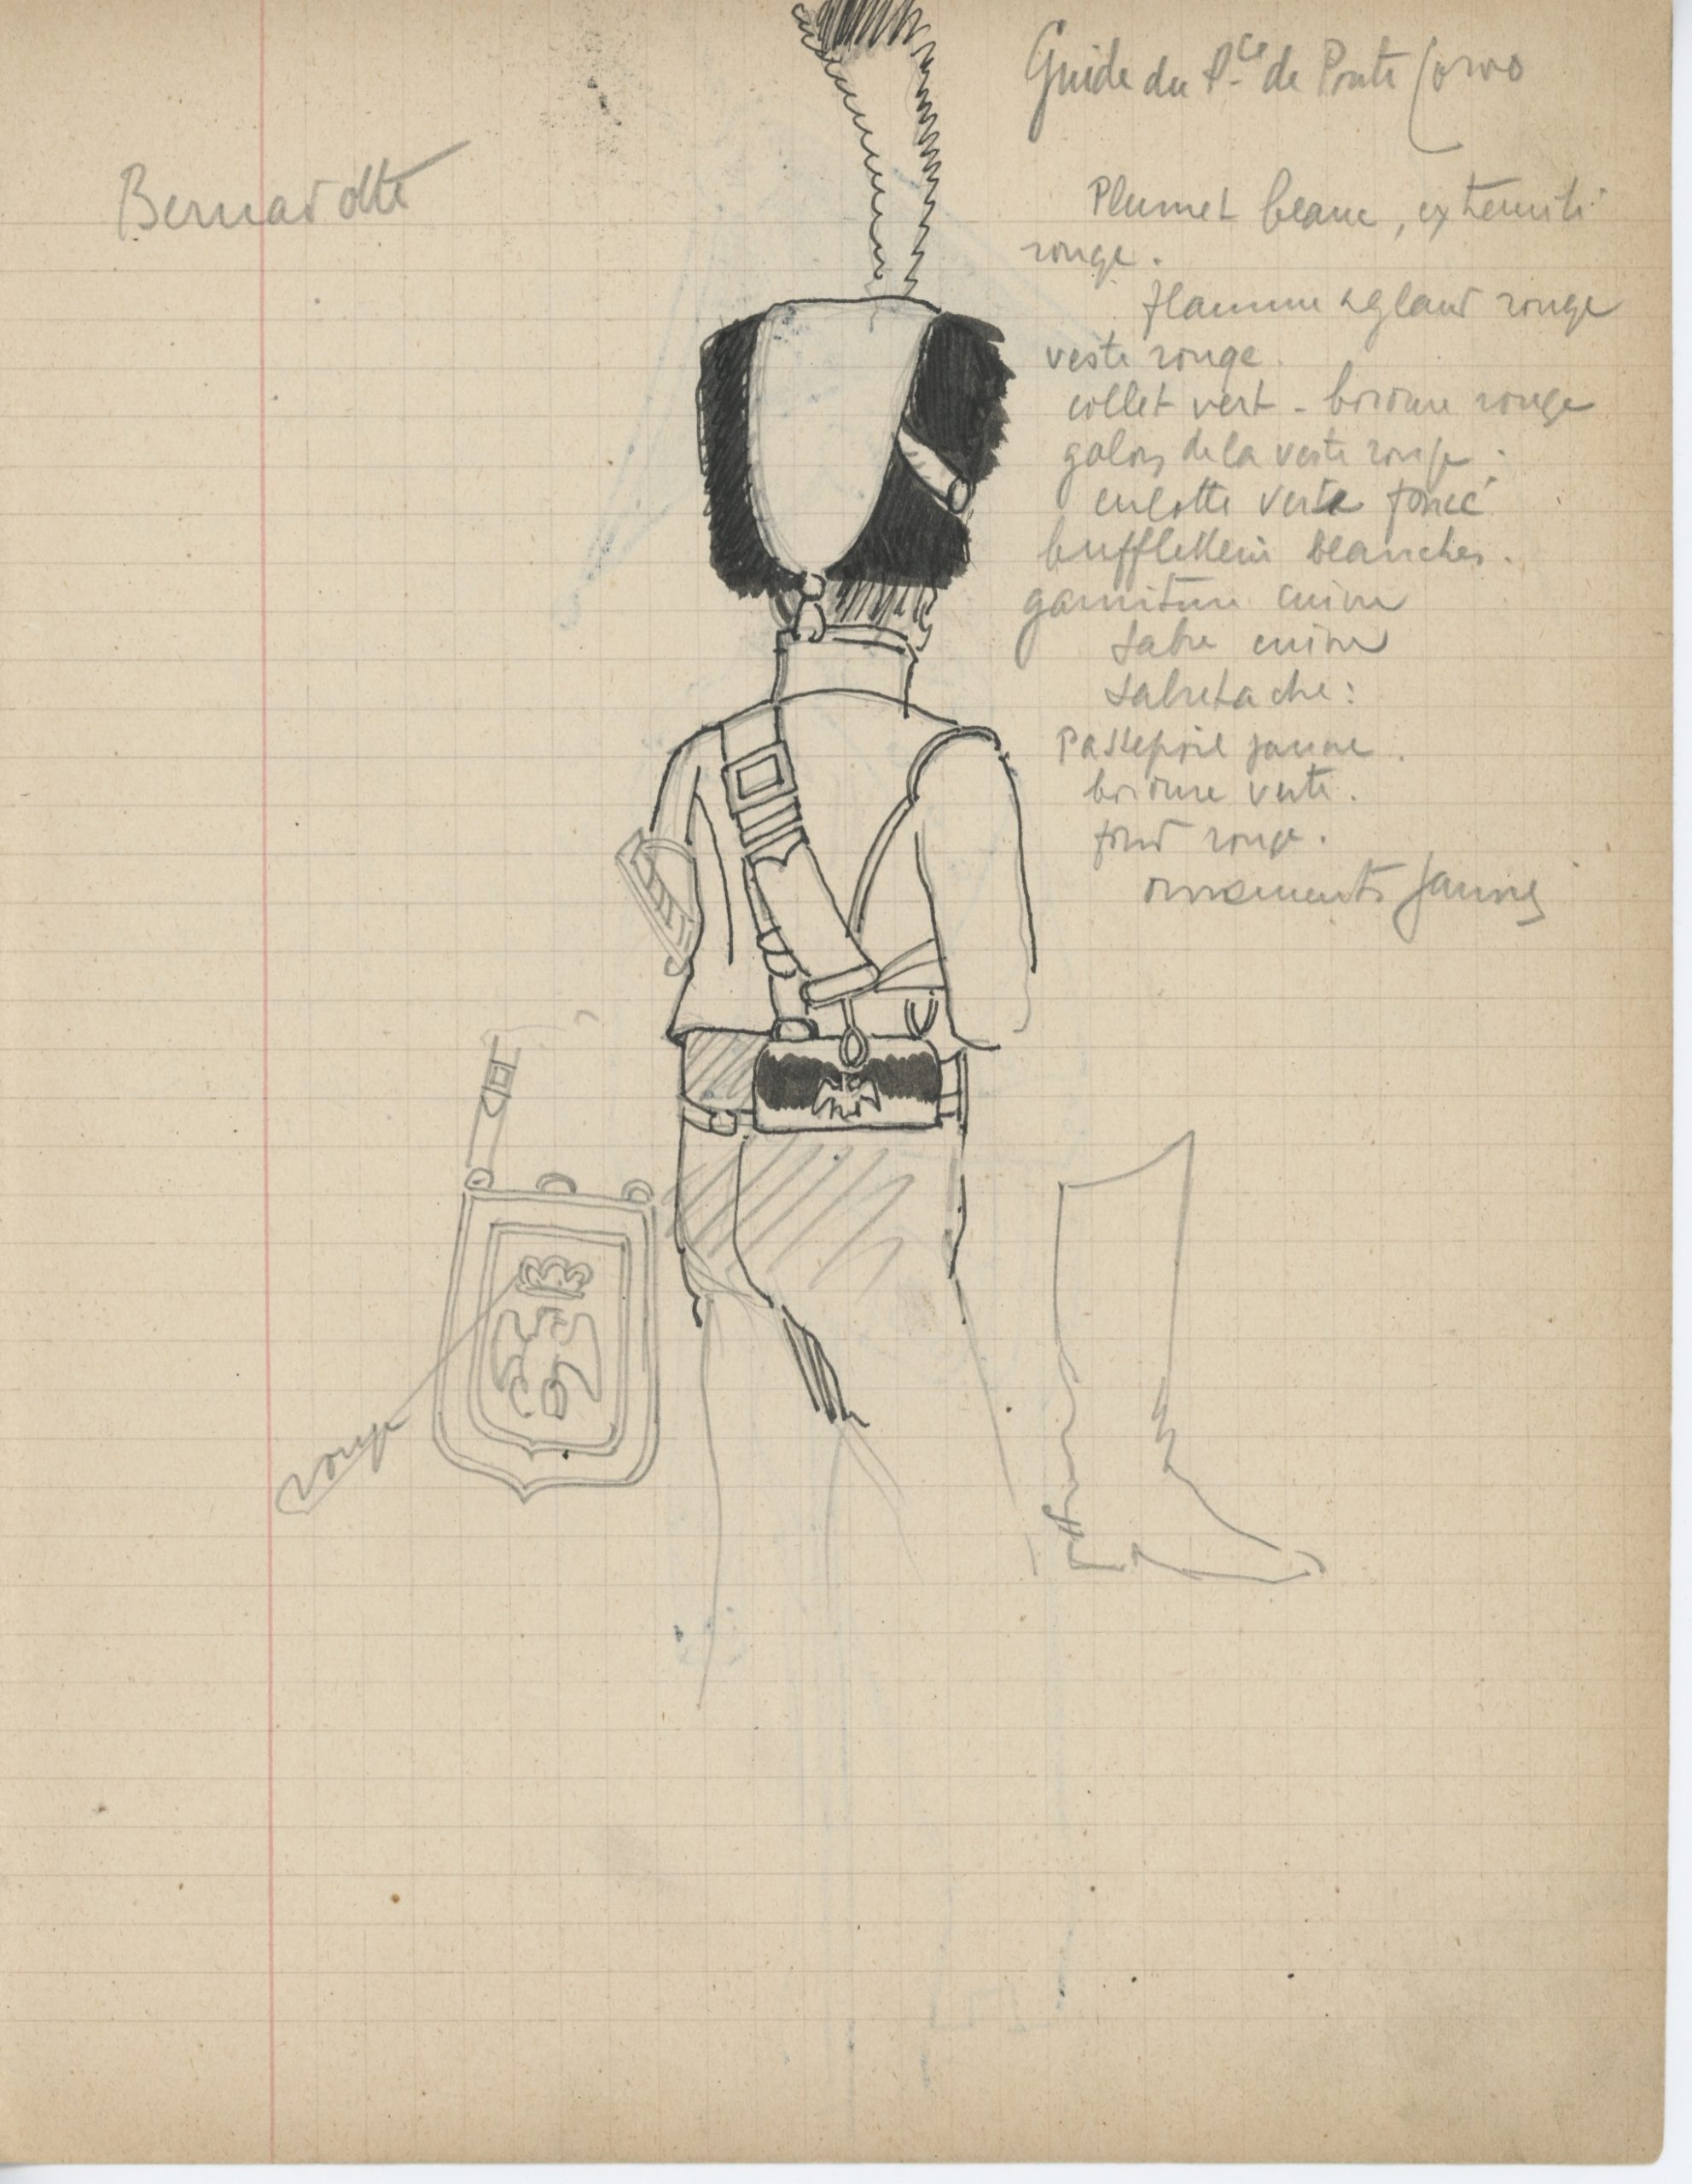 Guide du Pce de Ponte Corvo
Bernadotte
Plumet blanc, extremité
rouge.
flamme & gland rouge
veste rouge.
collet vert - bordure rouge
galons de la veste rouge.
culotte verte foncé
buffletterie blanches.
garniture cuivre
sabre cuivre
sabretache:
Passepoil jaune.
bordure verte.
fond rouge.
ornements jaunes
rouge